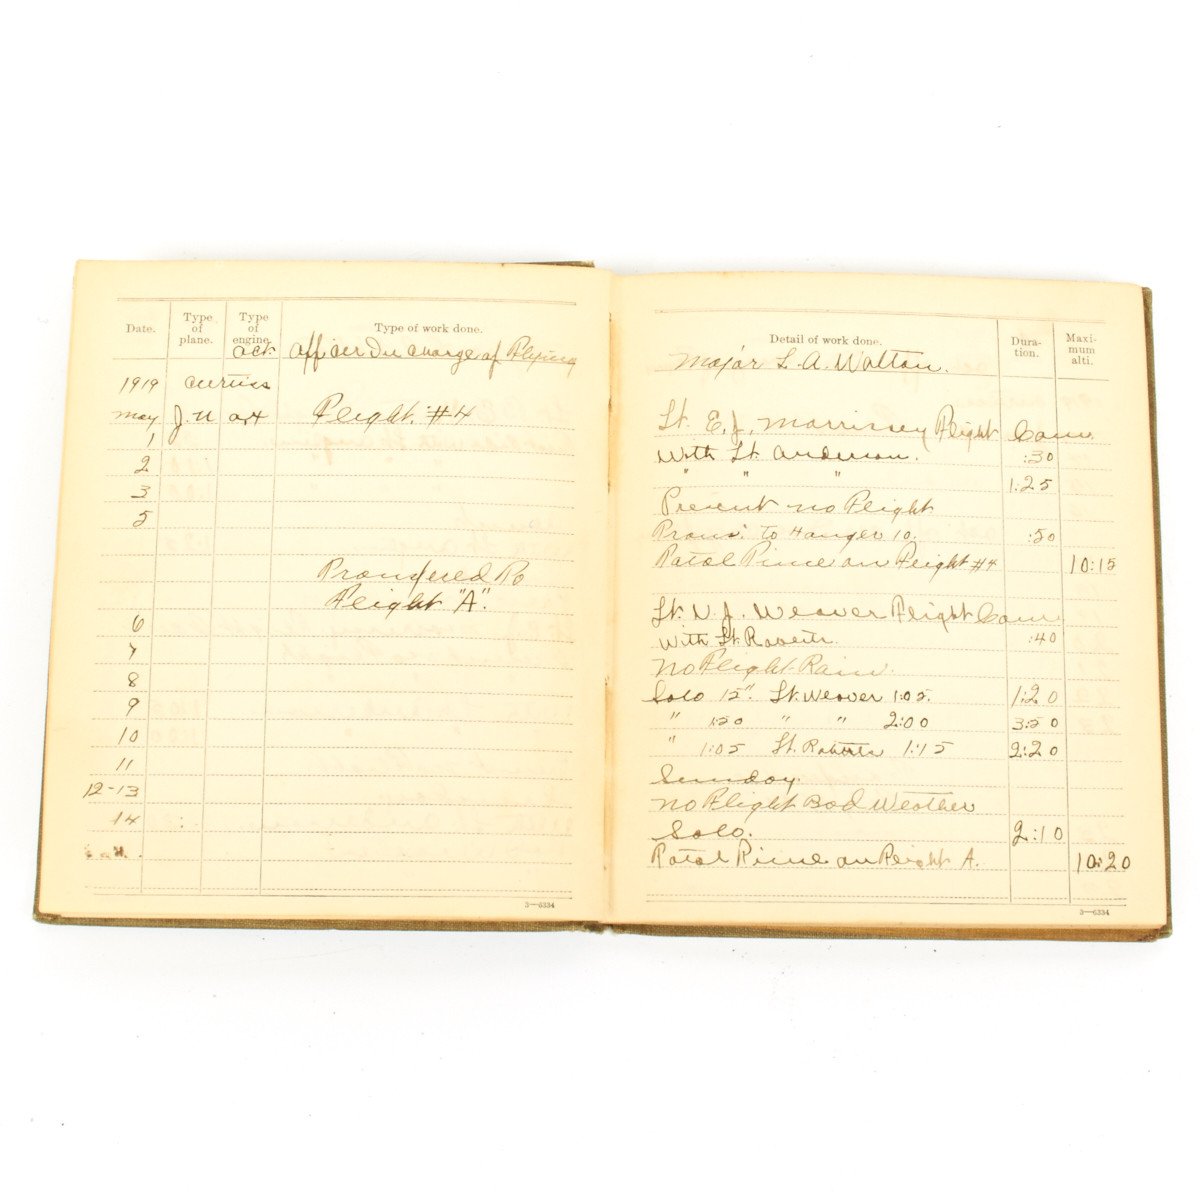 Date. Type of plane. Type of engine. Type of work done.
act. Officer In Charge of Flying
1919 Curtiss
May J.N ox Flight. #4
1
2
3
5
Transfered To
Flight "A".
6
7
8
9
10
11
12-13
14
3—6334
Detail of work done. Dura- tion. Maxi- mum alti.
Major L. A. Walton.
Lt. E. J. Morrissey Flight Com.
With Lt. Anderson. :30
" " " 1:25
Present no Flight
Trans. To Hanger 10. :50
Total Time on Flight #4 10:15
Lt. N. J. Weaver Flight Com
With Lt. Roberts. :40
No Flight Rain.
Solo 15". Lt. Weaver 1:05. 1:20
" 1:20 " " 2:00 3:20
" 1:05 Lt. Roberts 1:15 2:20
Sunday.
No Flight Bad Weather
Solo. 2:10
Total Time on Flight A. 10:20
3—6334